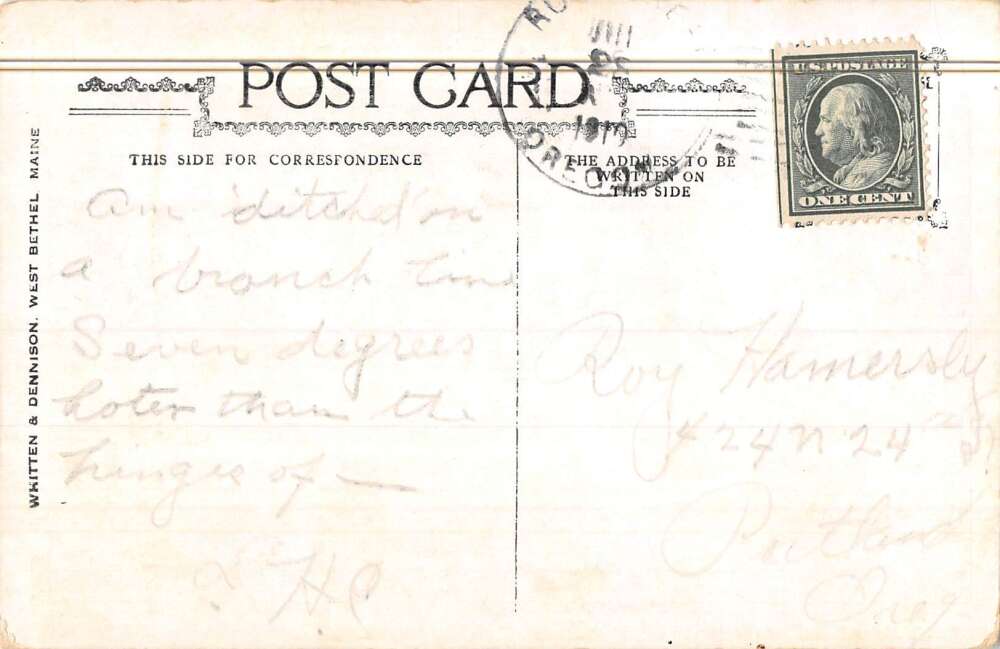 POST CARD
THIS SIDE FOR CORRESFONDENCE
THE ADDRESS TO BE
WRITTEN ON
THIS SIDE
U.S. POSTAGE
ONE CENT
OREGON
WHITTEN & DENNISON. WEST BETHEL MAINE
Am 'ditched' on
a branch line
Seven degrees
hoter than the
hinges of —
HC
Roy Hamersly
424 N 24th St
Portland
Oreg